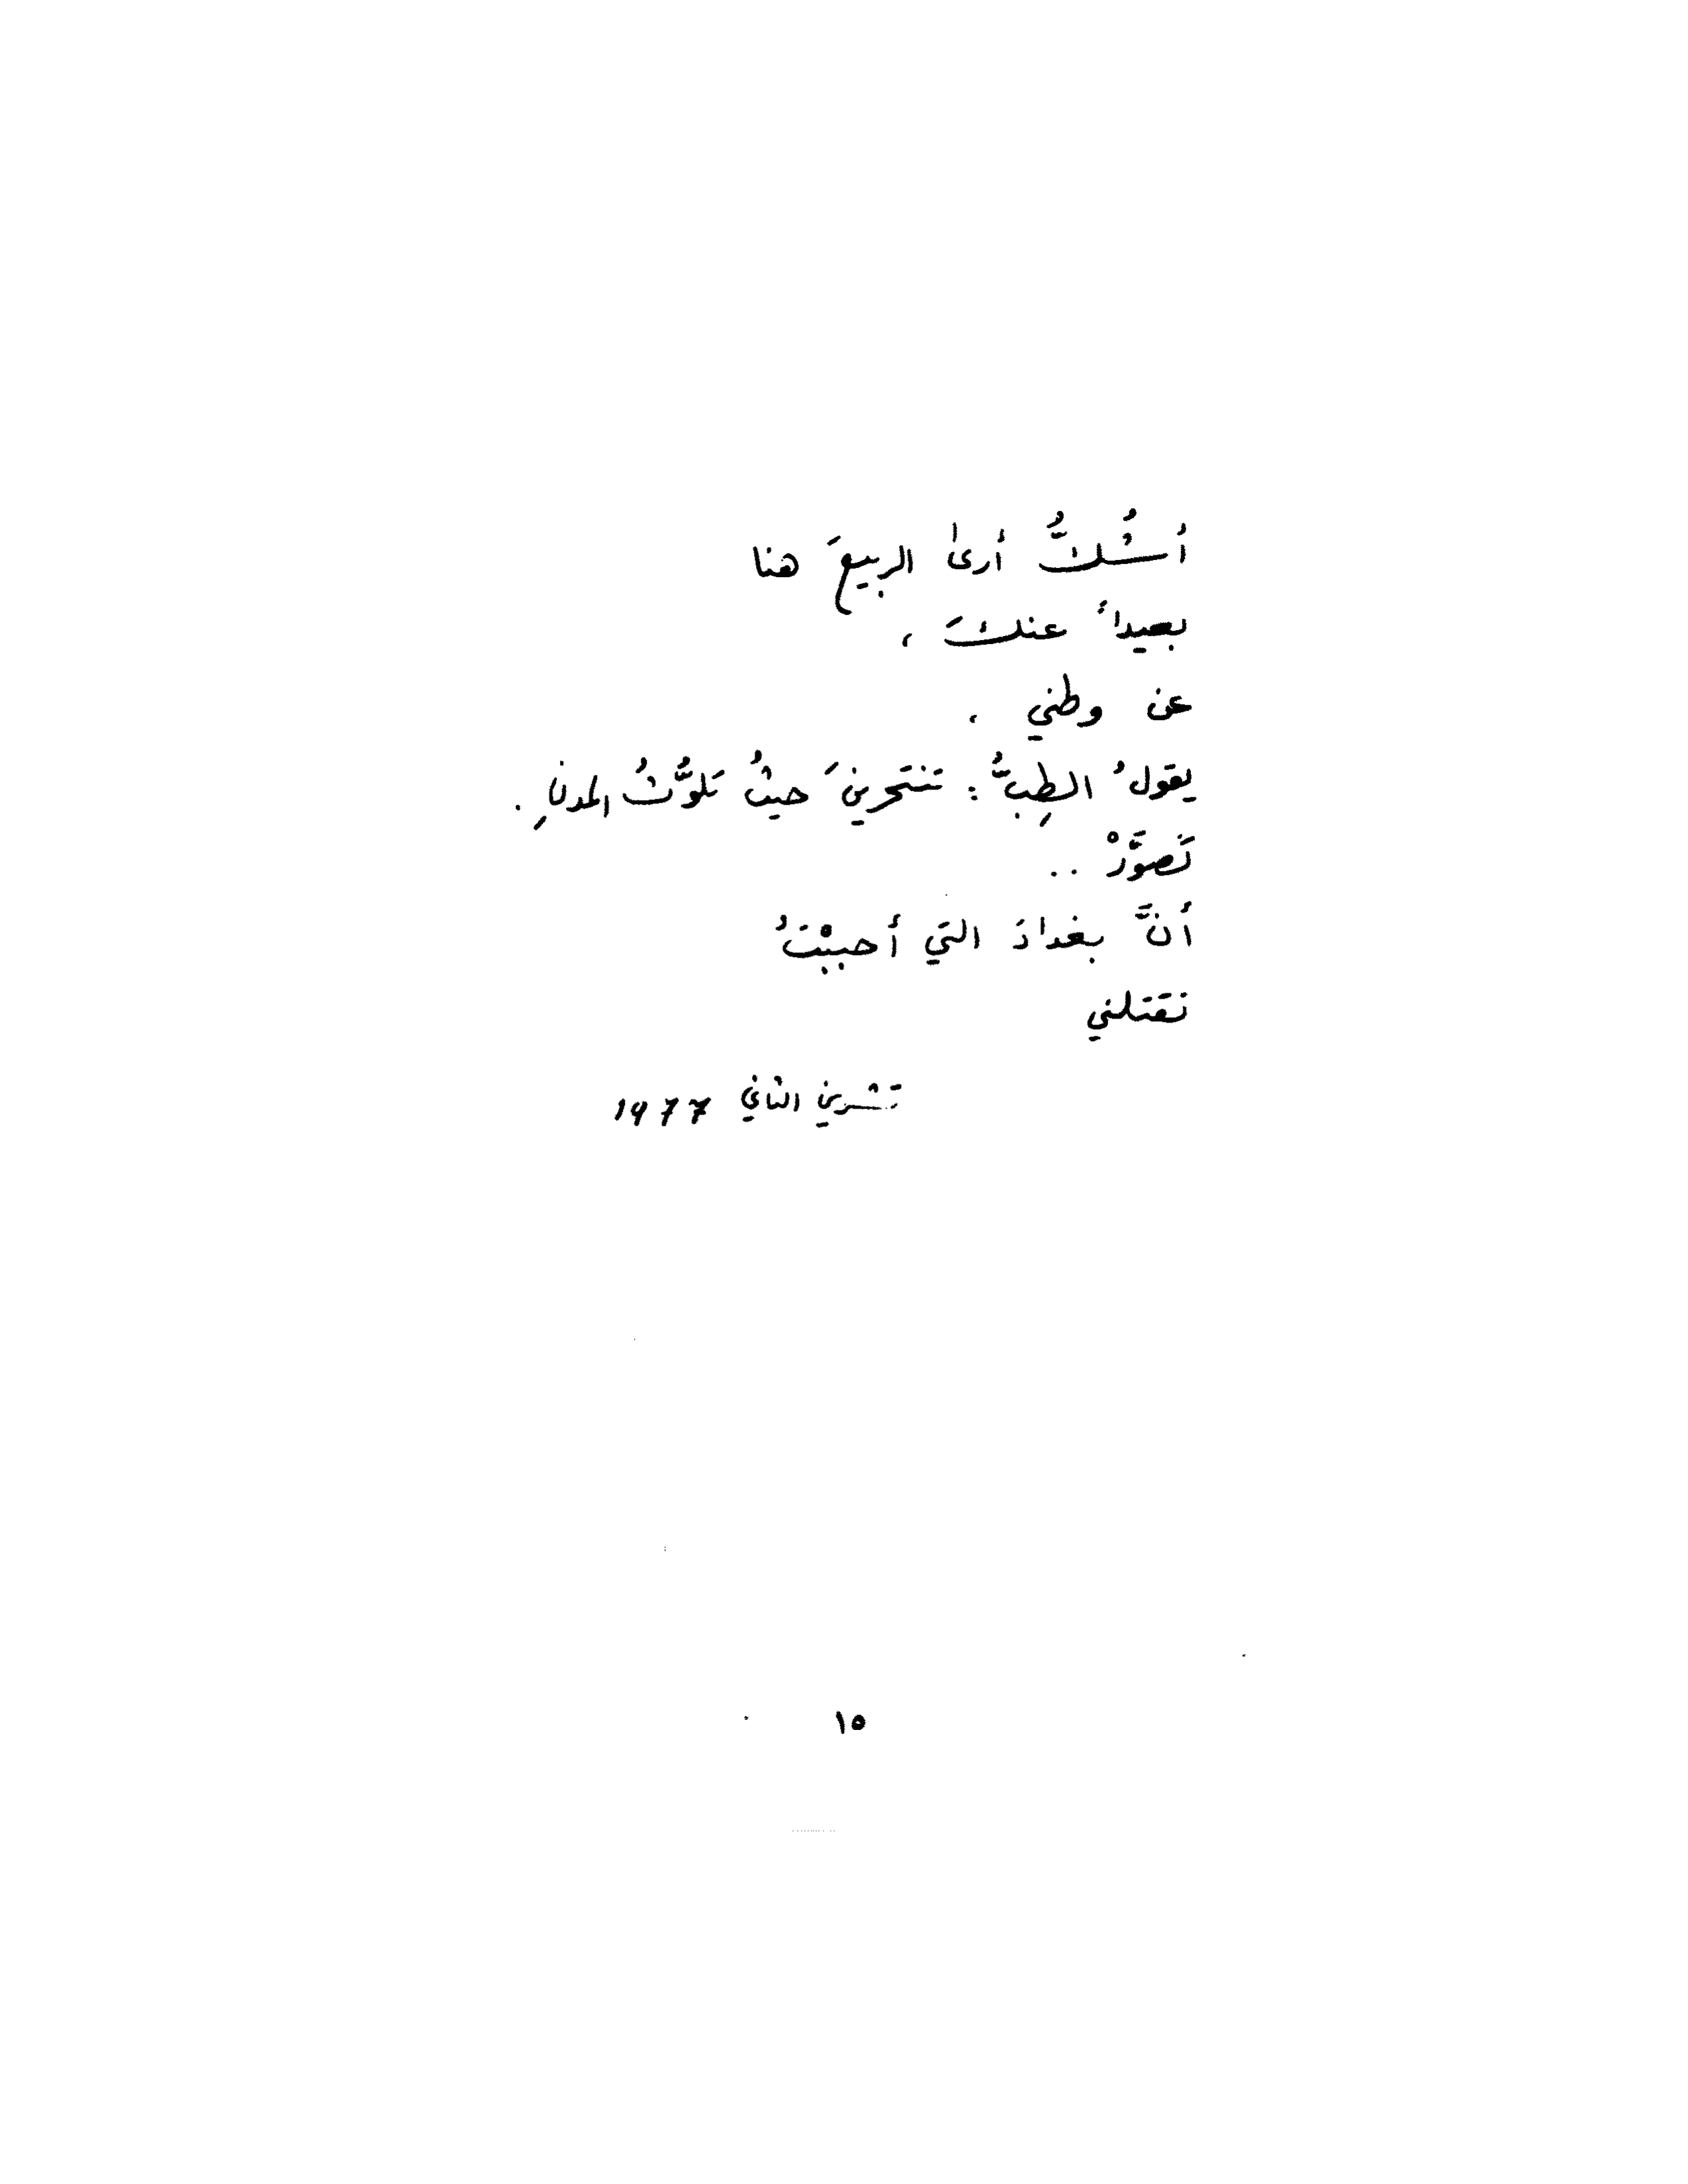 أشُكُّ أرىٰ الربيعَ هنا
بعيداً عنكَ ،
عن وطني .
يقولُ الطِبُّ : تنتحرينَ حيثُ تَلوُّثُ المدنِ .
تَصوَّرْ ..
أنَّ بغدادَ التي أحببْتُ
تقتلني
تشرين الثاني 1977
١٥